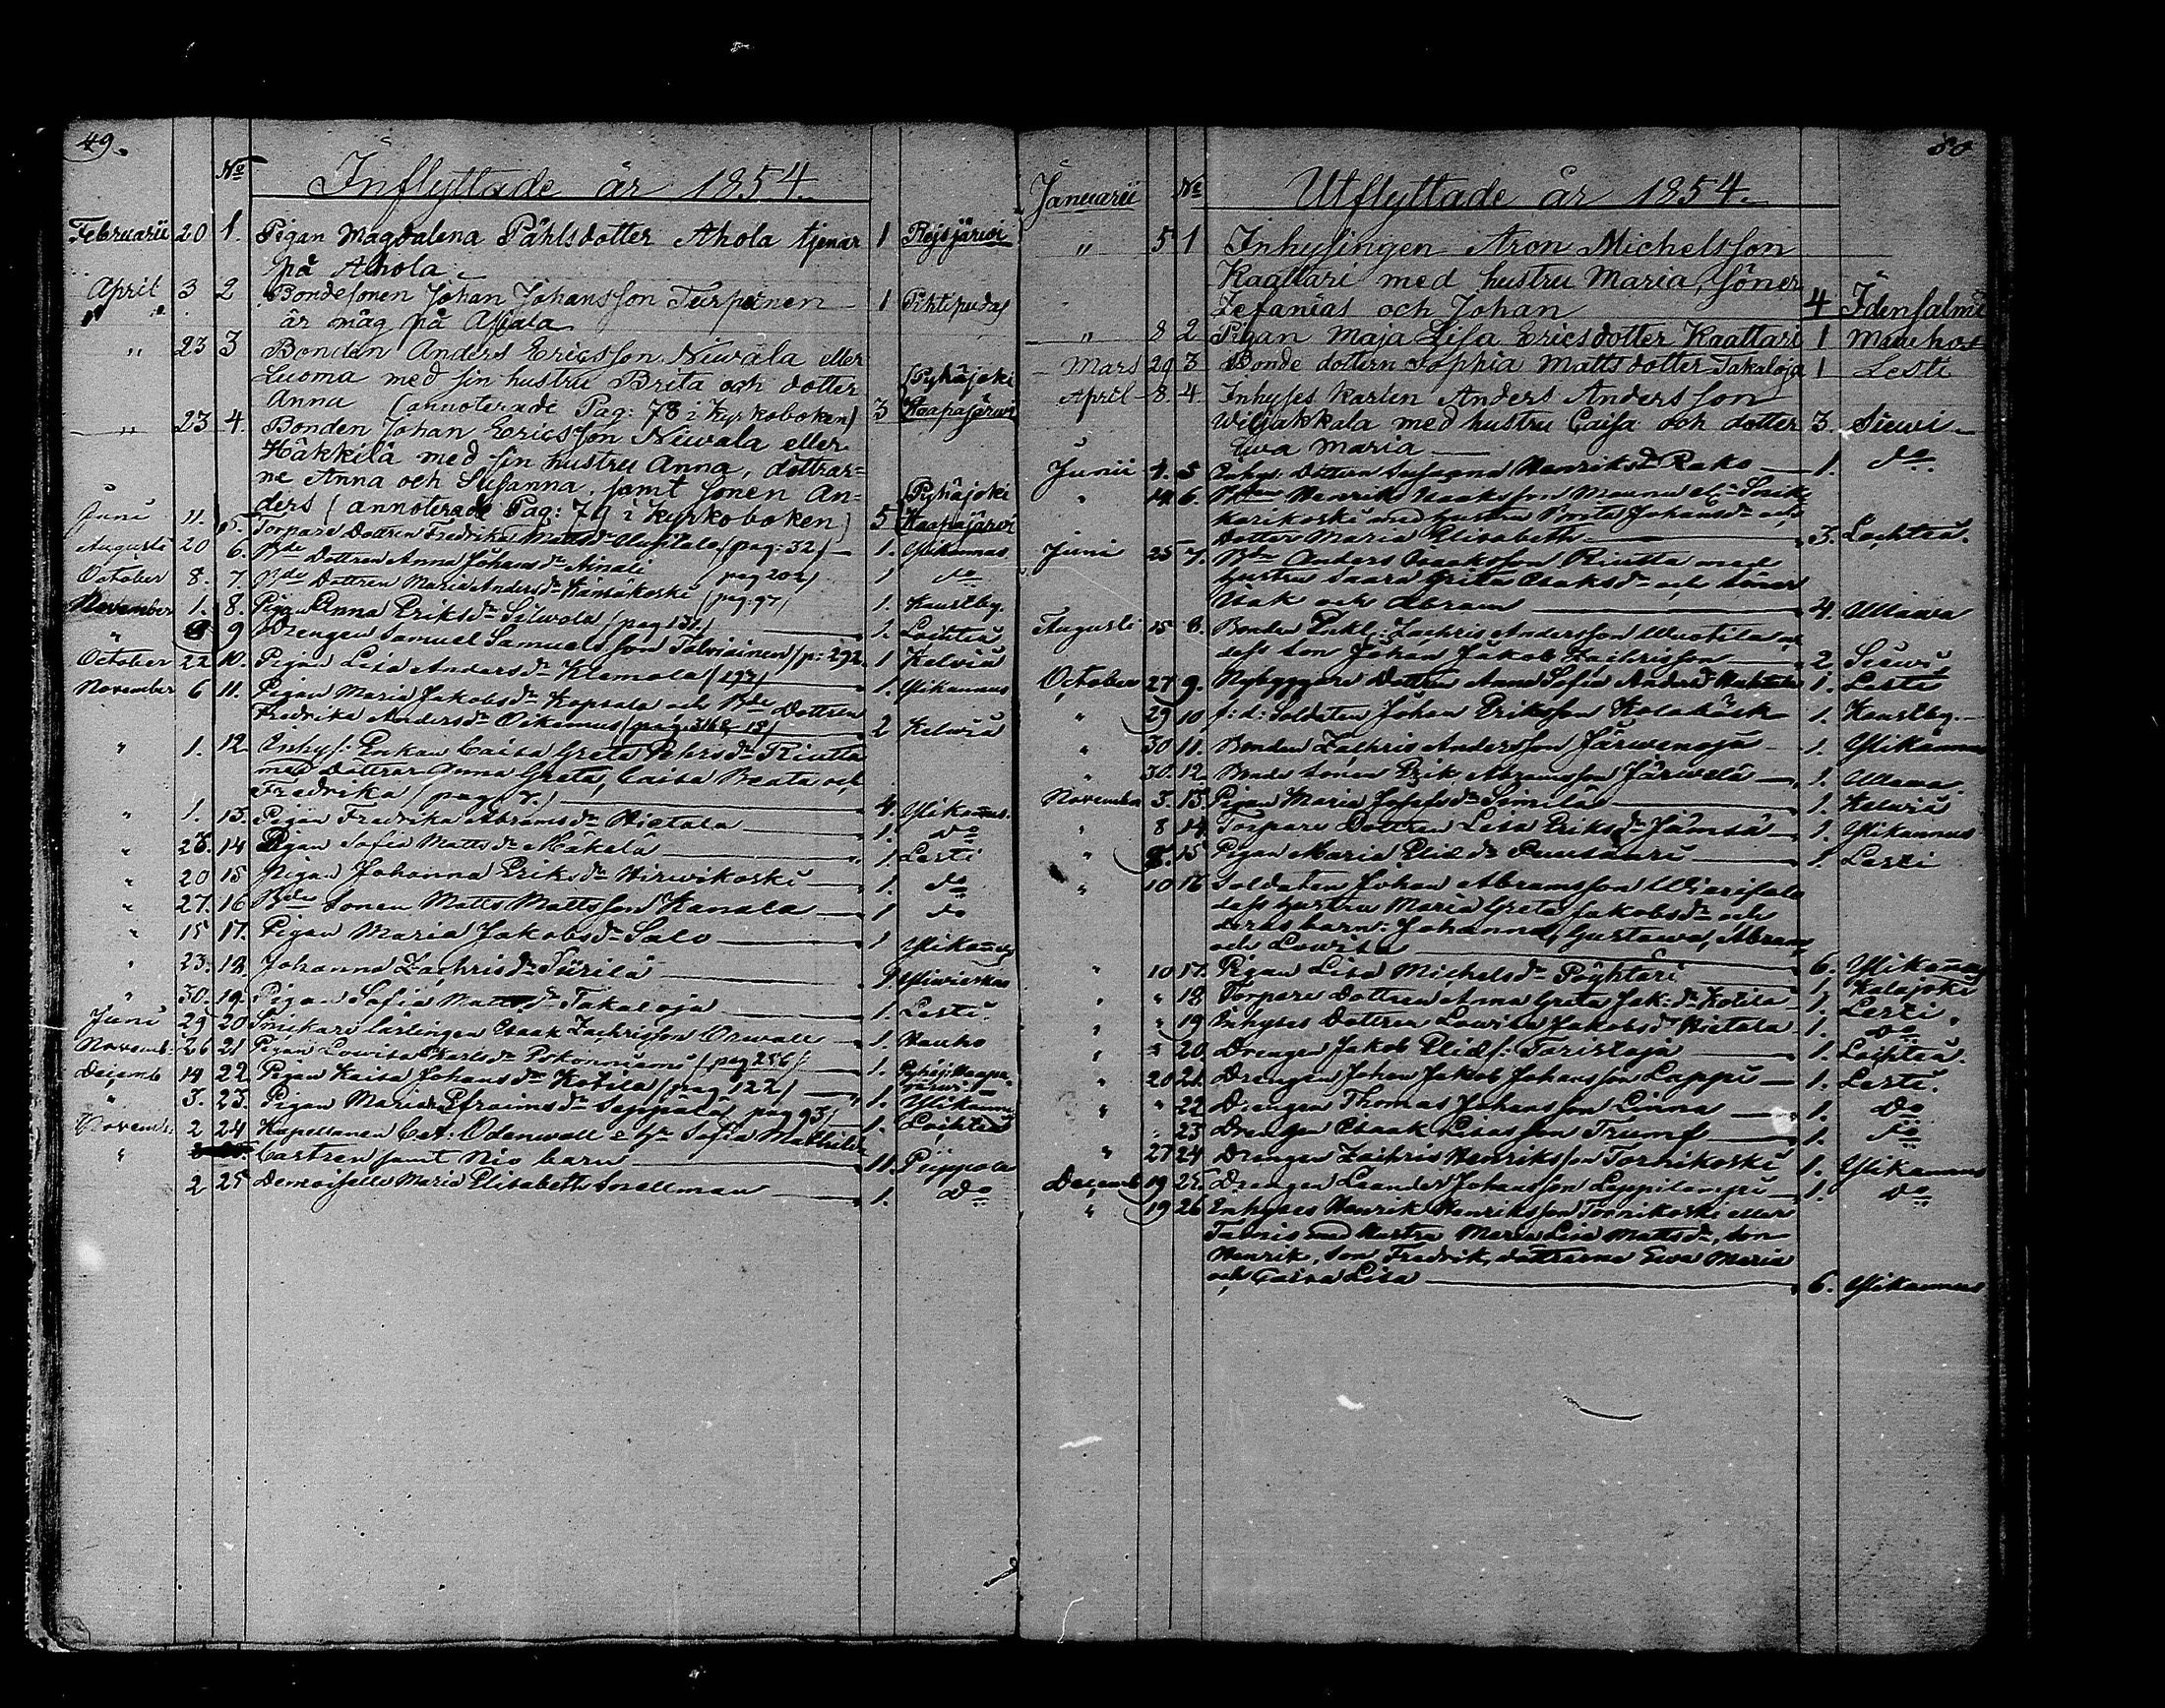 49.
No
Inflyttade år 1854.
Februarii 20 1. Pigan Magdalena Påhlsdotter Ahola tjenar 1 Rejsjärwi
på Ahola
April 3 2 Bondesonen Johan Johansson Turpeinen 1 Pihtipudas
är måg på Assiala
" 23 3 Bonden Anders Ericsson Niwala eller
Luoma med sin hustru Brita och dotter (Pyhäjoki
Anna (annoterade Pag: 78 i kyrkoboken) 3 Haapajärwi
" 23 4. Bonden Johan Ericsson Niwala eller
Häkkilä med sin hustru Anna, döttrar=
ne Anna och Susanna, samt sonen An= (Pyhäjoki
ders (annoterade Pag: 79 i kyrkoboken) 5 (Haapajärwi
Juni 11. 5. Torpare Dottren Fredrika Mattsdr (pag: 32) 1. Ylikannus
Augusti 20 6. Bde Dottren Anna Johansdr Ainali (pag 202) 1 do
October 8. 7. Bde Dottren Maria Andersdr Hämäkoski (pag. 97) 1. Kaustby.
November 1. 8. Pigan Anna Eriksdr Silwola (pag 131) 1. Lochteå
" 9 Drengen Samuel Samuelsson Tolwiainen (p: 292. 1 Kelviå
October 22 10. Pigan Lisa Andersdr Klemola (197) 1. Ylikannus
November 6 11. Pigan Maria Jakobsdr Kopsala och Bde Dottren
Fredrika Andersdr Oikemus (pag: 348 18) 2 Kelviå
" 1. 12. Inhys: Enkan Caisa Greta Pehrsdr Riutta
med Döttrar Anna Greta, Caisa Beata och
Fredrika (pag. 7.) 4. Ylikannus.
" 1. 13. Pigan Fredrika Abramsdr Hietala 1. do
" 28. 14 Pigan Sofia Mattsdr Mäkelä 1 Lesti
" 20 15 Pigan Johanna Eriksdr Hirwikoski 1. do
" 27. 16 Bde Sonen Matts Mattsson Kanala 1 do
" 15 17. Pigan Maria Jakobsdr Salo 1 Ylikannus
" 23. 18. Johanna Zachrisdr Türilä 1 Yliwieska
" 30. 19. Pigan Sofia Mattsdr Takaloja 1. Lesti.
Juni 29 20 Snickare lärlingen Isaak Zachrisson Orwall 1. Nauho
Novemb. 26 21 Pigan Lowisa Karlsdr (pag 256) 1. Pyhäj: Haapa-
järwi
Decemb 14 22. Pigan Kaisa Johansdr Kotila (pag 122) 1. Ylikannus
" 3. 23. Pigan Maria Efraimsdr Seppälä pag 93) 1. Lochteå
Novemb: 2 24 Kapellanen Odenwall Sofia Mathilda
" Castren samt Nio barn 11. Piippola
2 25 Demoiselle Maria Elisabeth Snellman 1. Do
50
Januarii No Utflyttade år 1854.
" 5 1 Inhysingen Aron Michelsson
Kaattari med hustru Maria, söner
Zefanias och Johan 4 Idensalmi
" 8 2 Pigan Maja Lisa Ericsdotter Kaattari 1
Mars 29 3 Bonde dottern Sophia Mattsdotter Takaloja 1 Lesti
April 8 4. Inhyses karlen Anders Andersson
Wiljakkala med hustru Caisa och dotter 3. Siewi
Ewa Maria
Junii 4. 5 Inhys. Dottren Susanna Henriksdr Rako 1. do.
" 14 6. Henrik Isaksson
Karikoski med hustru Brita Johansdr och
Dotter Maria Elisabeth 3. Lochteå.
Juni 25 7. Bde Anders Isaaksson Riutta med
hustru Saara Greta Isaksdr och söner
Isak och Abram 4. Ullawa
Augusti 15 8. Bonden Enkl: Zachris Andersson och
dess son Johan Jakob Zachrisson 2 Siewi
October 27 9. Nybyggare Dottren Anna Sofia Andersdr 1. Lesti
" 29 10 f: d: Soldaten Johan Eriksson Kolabäck 1. Kaustby.
" 30 11. Bonden Zachris Andersson Järwenoja 1. Ylikannus
" 30. 12. Bonde Sonen Erik Abramsson Järwelä 1. Ullawa.
November 3. 13. Pigan Maria Josefsdr Similä 1. Kelviå
" 8 14. Torpare Dottren Lisa Eriksdr Jämsä 1. Ylikannus
" 8. 15 Pigan Maria Eliedr Puusaari 1. Lesti
" 10 16 Soldaten Johan Abramsson
dess hustru Maria Greta Jakobsdr och
deras barn: Johanna, Gustawa, Abram,
och Lowisa 6. Ylikannus
" 10 17. Pigan Lisa Michelsdr Pöyhtäri 1. Kalajoki
" " 18 Torpare Dottren Anna Greta Jak:dr Kotila 1. Lesti.
" " 19 Inhyses Dottren Lowisa Jakobsdr Hietala 1. Do
" " 20. Drengen Jakob Elies: Toristoja 1. Lochteå.
" 20 21. Drengen Johan Jakob Johansson Lappi 1. Lesti.
" " 22 Drengen Thomas Johansson Linna 1. Do
" 23 Drengen Isaak Lisasson Trumf 1. do
" 27 24 Drengen Zachris Henriksson Tornikoski 1. Ylikannus
Decemb 19 25. Drengen Leander Johansson Leppilampi 1. Do
" 19 26 Inhyses Henrik Henriksson Tornikoski eller
med Hustru Maria Lisa Mattsdr, son
Henrik, son Fredrik, döttrarna Ewa Maria
och Caisa Lisa 6. Ylikannus